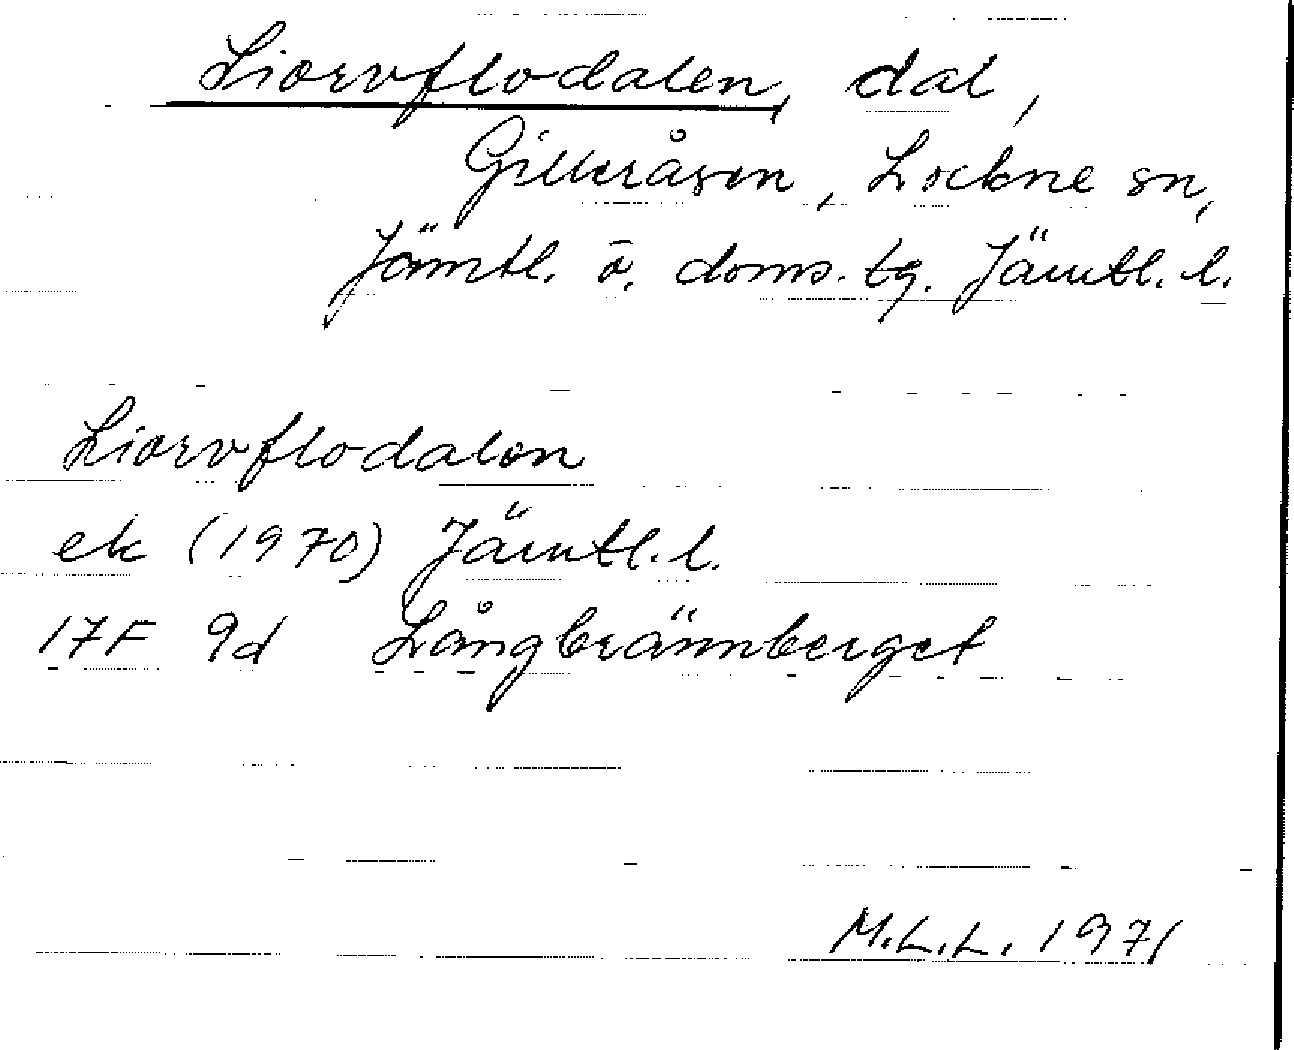 Liorvflodalen, dal,
Gilleråsen, Lockne sn,
Jämtl. ö. doms. tg. Jämtl. l.
Liorvflodalen
ek (1970) Jämtl. l.
17F 9d Långbrännberget
M.L.L. 1971